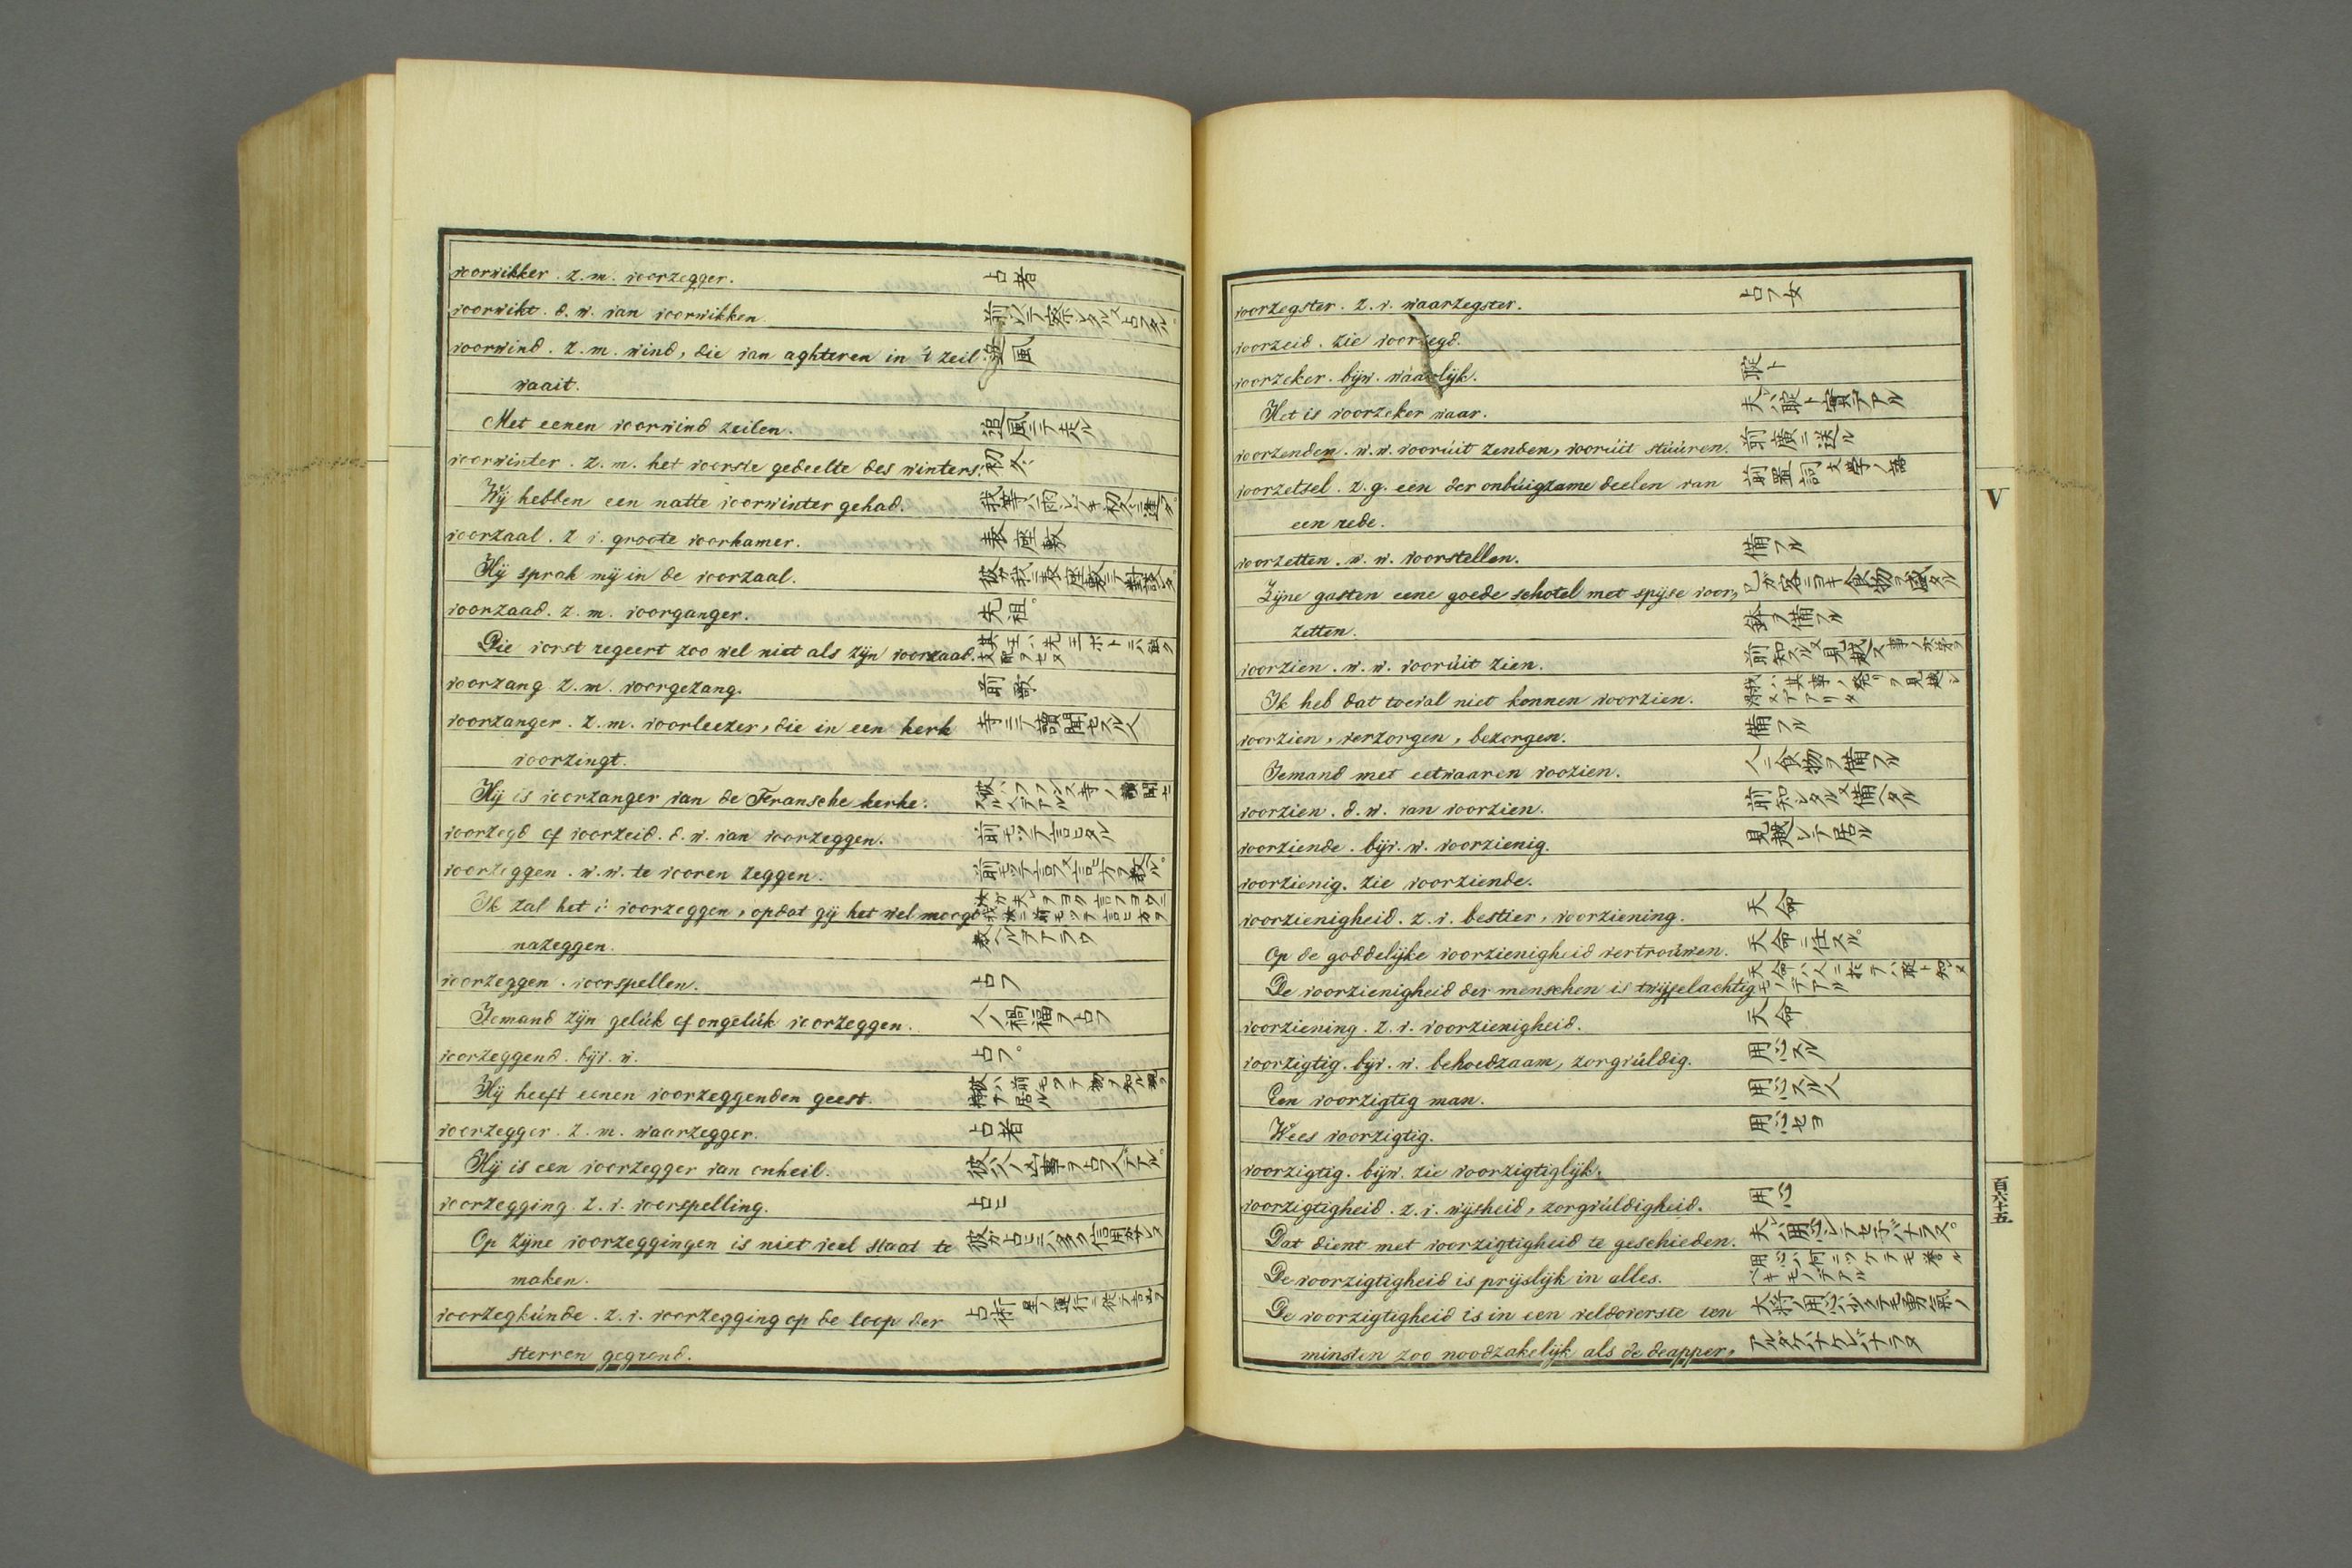 voorwikker. z.m. voorzegger. 占者
voorwikt. d.w. van voorwikken. 前以テ察シタル 占フタル。
voorwind. z.m. wind, die van aghteren in 't zeil 追風
waait.
Met eenen voorwind zeilen. 追風ニテ走ル
voorwinter. z.m. het voorste gedeelte des winters. 初冬
Wij hebben een natte voorwinter gehad.
voorzaal. z.v. groote voorkamer. 表座敷
Hij sprak mij in de voorzaal. 彼ガ我ニ表座敷ニテ對談シタ。
voorzaad. z.m. voorganger. 先祖。
Die vorst regeert zoo wel niet als zijn voorzaad.
voorzang z.m. voorgezang. 前歌
voorzanger. z.m. voorleezer, die in een kerk 寺ニテ讀聞セスル人
voorzingt.
Hij is voorzanger van de Fransche kerke.
voorzegd of voorzeid. d.w. van voorzeggen. 前モツテ言ヒタル
voorzeggen. w.w. te vooren zeggen. 前モツテ言フ 又言ヒ方ヲ教ヘル。
Ik zal het ú voorzeggen, opdat gij het wel moogt
nazeggen. 教ヘルデアラウ
voorzeggen. voorspellen. 占フ
Iemand zijn gelúk of ongelúk voorzeggen. 人ノ禍福ヲ占フ
voorzeggend. bijv. w. 占フ。
Hij heeft eenen voorzeggenden geest.
voorzegger. z.m. waarzegger. 占者
Hij is een voorzegger van onheil. 彼ハ人ノ凶事ヲ占フ人デアル。
voorzegging. z.v. voorspelling. 占ヒ
Op zijne voorzeggingen is niet veel staat te
maken.
voorzegkúnde. z.v. voorzegging op de loop der 占術 星ノ運行ニ從テ言フ
sterren gegrond.
voorzegster. z.v. waarzegster. 占フ女
voorzeid. zie voorzegd.
voorzeker. bijw. waarlijk. 聢ト
Het is voorzeker waar. 夫ハ聢ト實デアル
voorzenden. w.w. voorúit zenden, voorúit stúúren. 前廣ニ送ル
voorzetsel. z.g. een der onbúigzame deelen van 前置詞 文學ノ語
een rede.
voorzetten. w.w. voorstellen. 備フル
Zijne gasten eene goede schotel met spijse voor, 己ガ客ニヨキ食物ヲ盛タル
zetten. 鉢ヲ備フル
voorzien. w.w. voorúit zien.
Ik heb dat toeval niet konnen voorzien.
voorzien, verzorgen, bezorgen. 備フル
Iemand met eetwaaren voozien. 人ニ食物ヲ備フル
voorzien. d.w. van voorzien. 前知シタル 又備ヘタル
voorziende. bijv. w. voorzienig. 見越シテ居ル
voorzienig. zie voorziende.
voorzienigheid. z.v. bestier, voorziening. 天命
Op de goddelijke voorzienigheid vertroúwen. 天命ニ任スル。
De voorzienigheid der menschen is twijfelachtig. 天命ハ人ニ於テハ聢ト知レヌモノデアル
voorziening. z.v. voorzienigheid. 天命
voorzigtig. bijv. w. behoedzaam, zorgvúldig. 用心スル
Een voorzigtig man. 用心スル人
Wees voorzigtig. 用心セヨ
voorzigtig. bijw. zie voorzigtiglijk.
voorzigtigheid. z.v. wijsheid, zorgvúldigheid. 用心
Dat dient met voorzigtigheid te geschieden. 夫ハ用心シテセネバナラヌ。
De voorzigtigheid is prijslijk in alles. 用心ハ何ニツケテモ譽ルベキモノデアル
De voorzigtigheid is in een veldoverste ten
minsten zoo noodzakelijk als de deapper, アルダケハナケレバナラヌ
V
百六十五